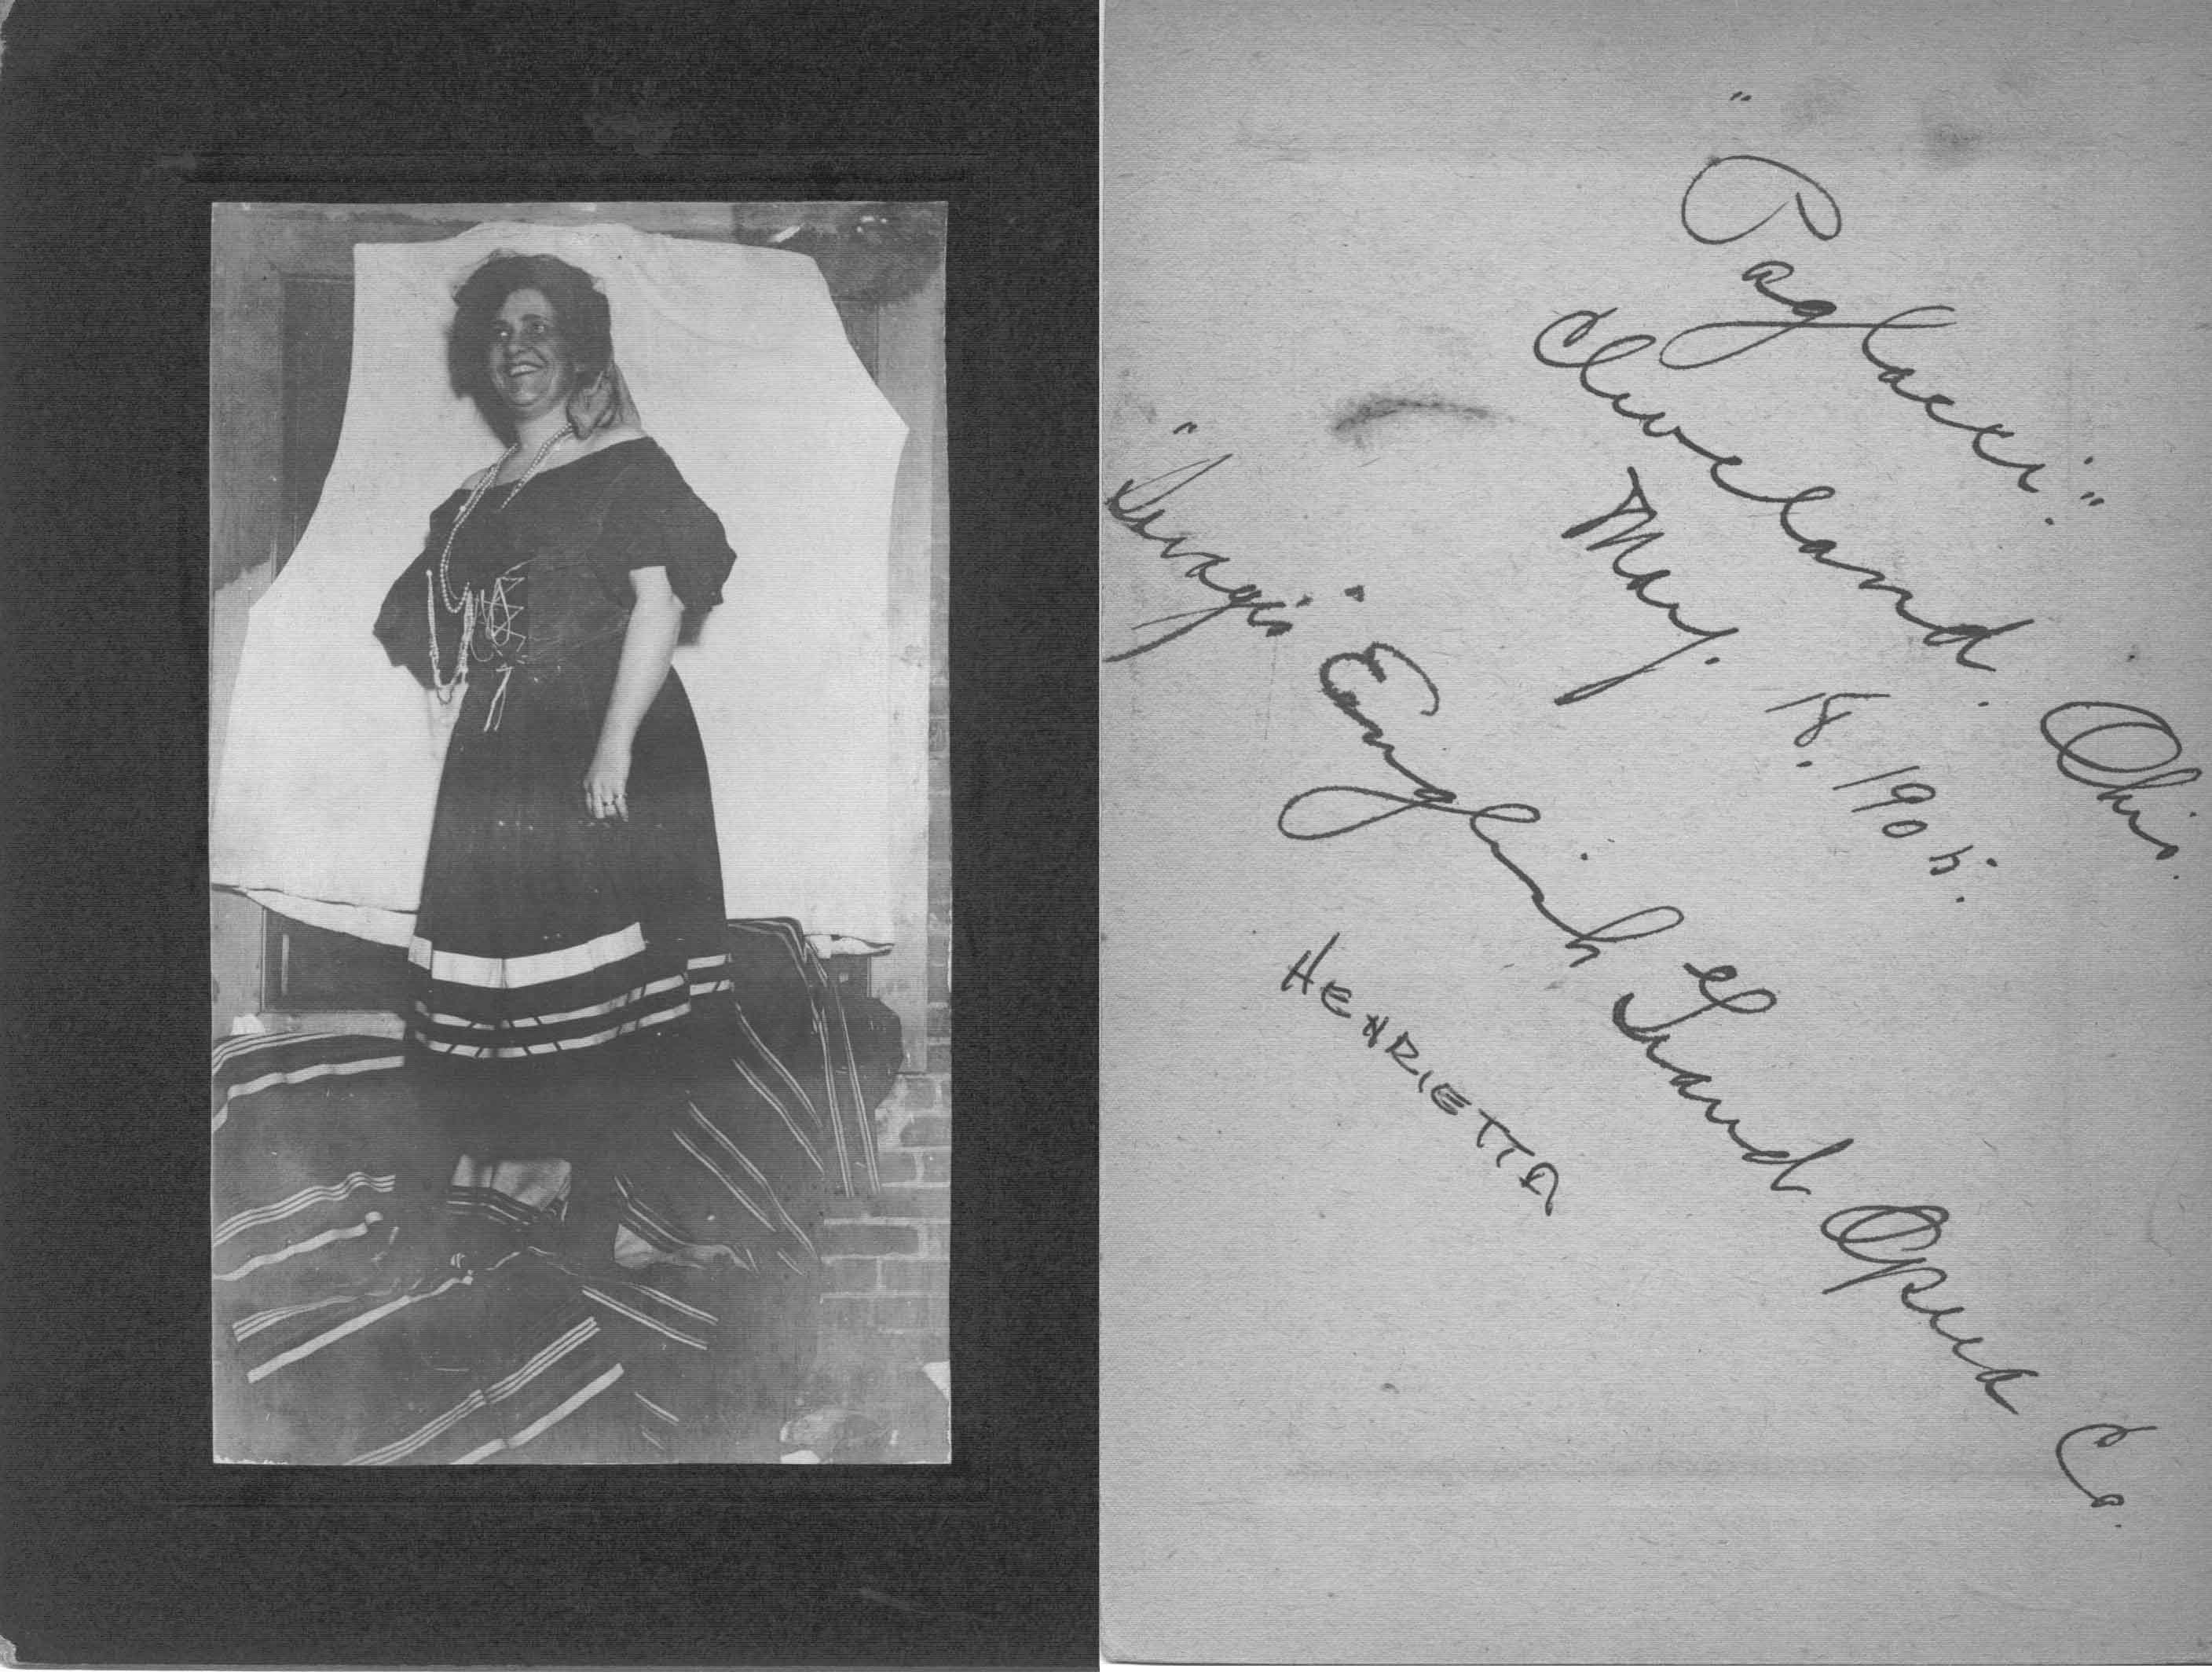 "Paglacci."
Cleveland. Ohio.
May. 18. 1905.
"Savage's" English Grand Opera Co.
HENRIETTA